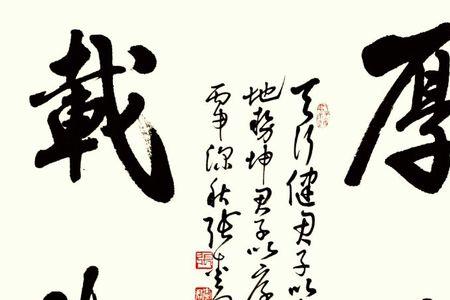 厚
天行健君子以
地勢坤君子以厚
丙申深秋張
載